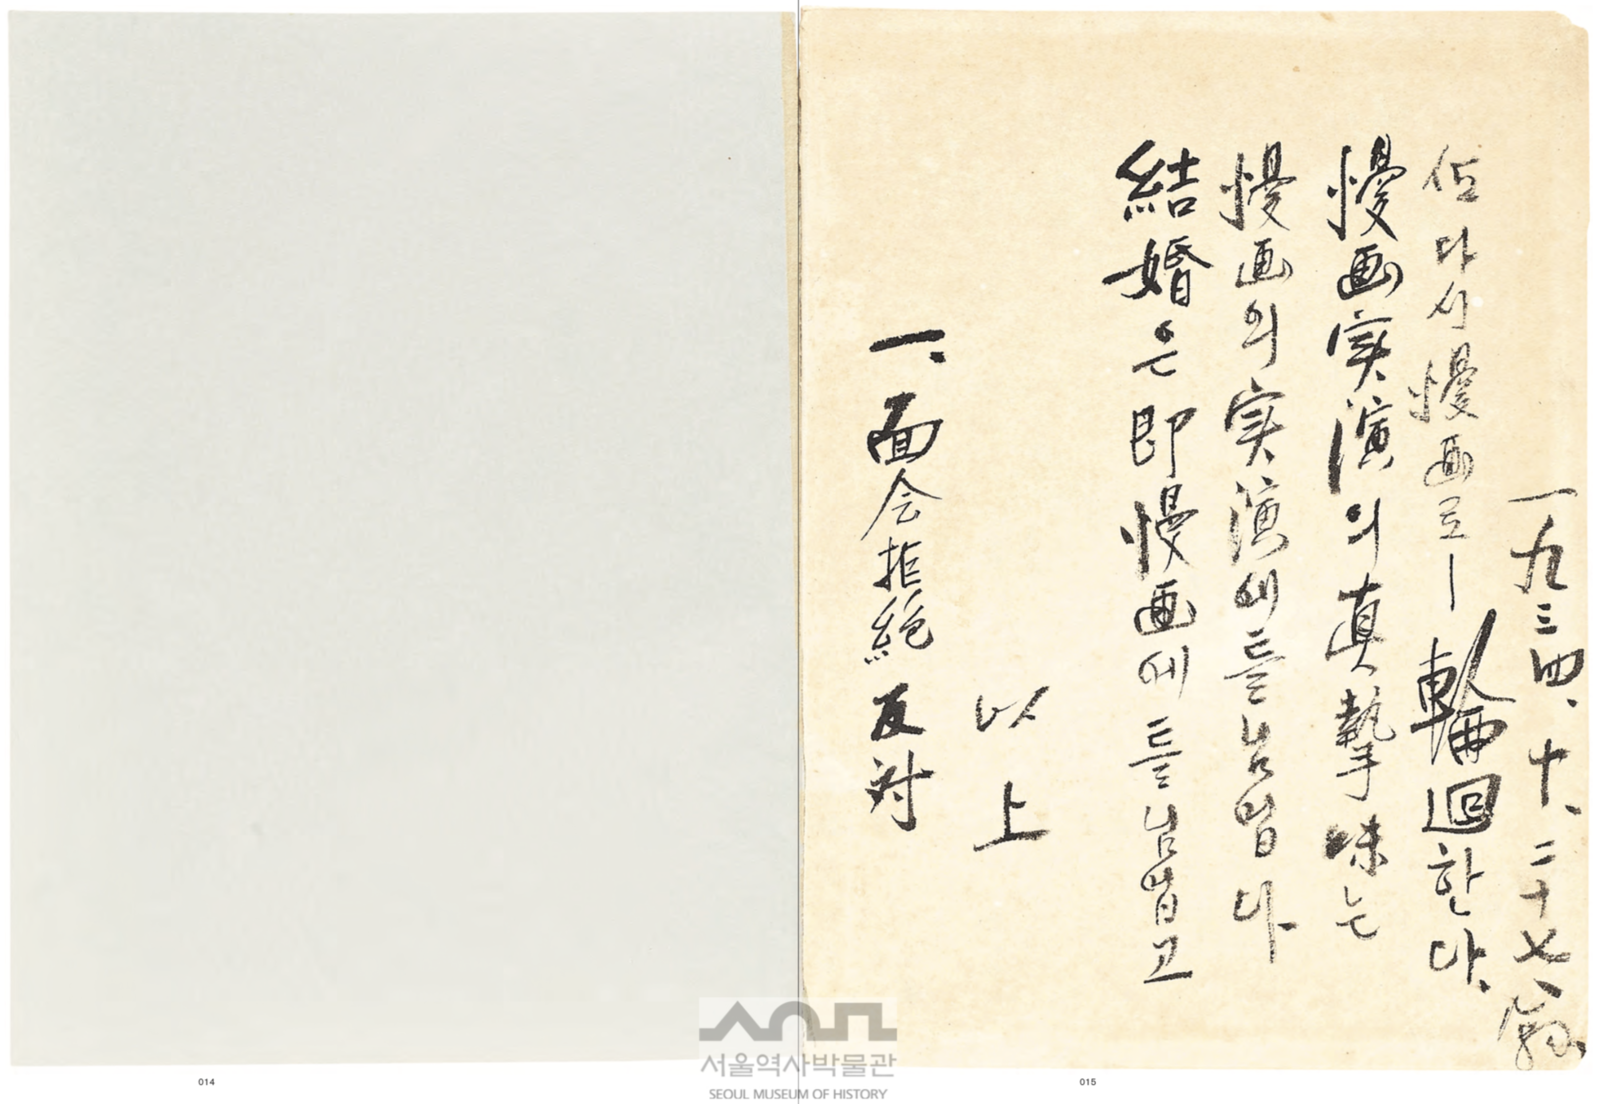 一、面会拒絶反対
以上
結婚은即慢画에틀님업고
慢画의実演에틀님업다
慢画実演의真摯味는
但다시慢画로ー輪廻한다.
一九三四、十、二十七、
서울역사박물관
SEOUL MUSEUM OF HISTORY
014
015